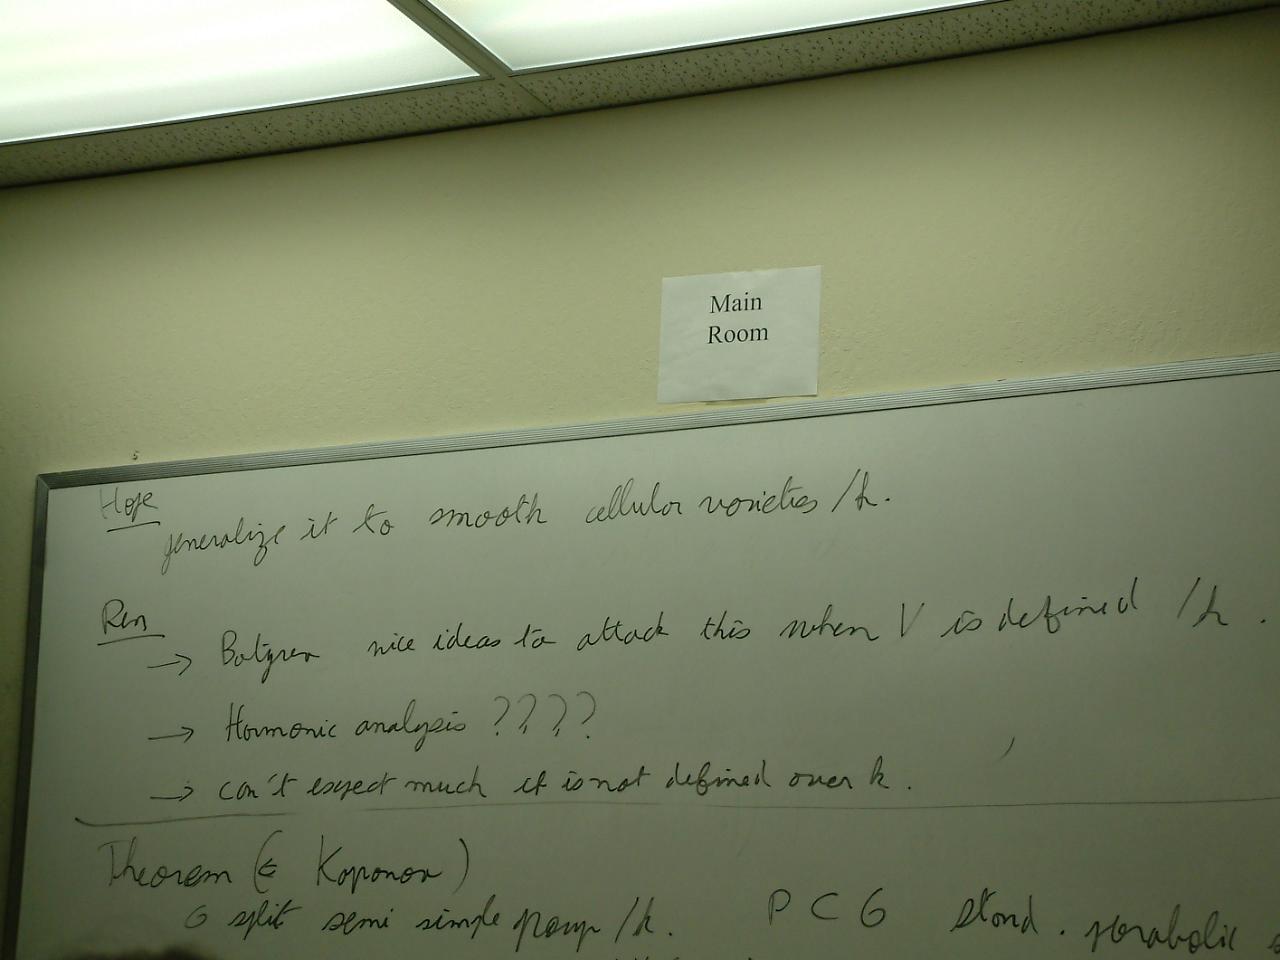 Main
Room
Hope
generalize it to smooth cellular varieties /k.
Rem
→ Batyrev nice ideas to attack this when V is defined /k.
→ Harmonic analysis ????
→ can't expect much if is not defined over k.
Theorem (E Kapranov)
G split semi simple group /k. P ⊂ G stand. parabolic